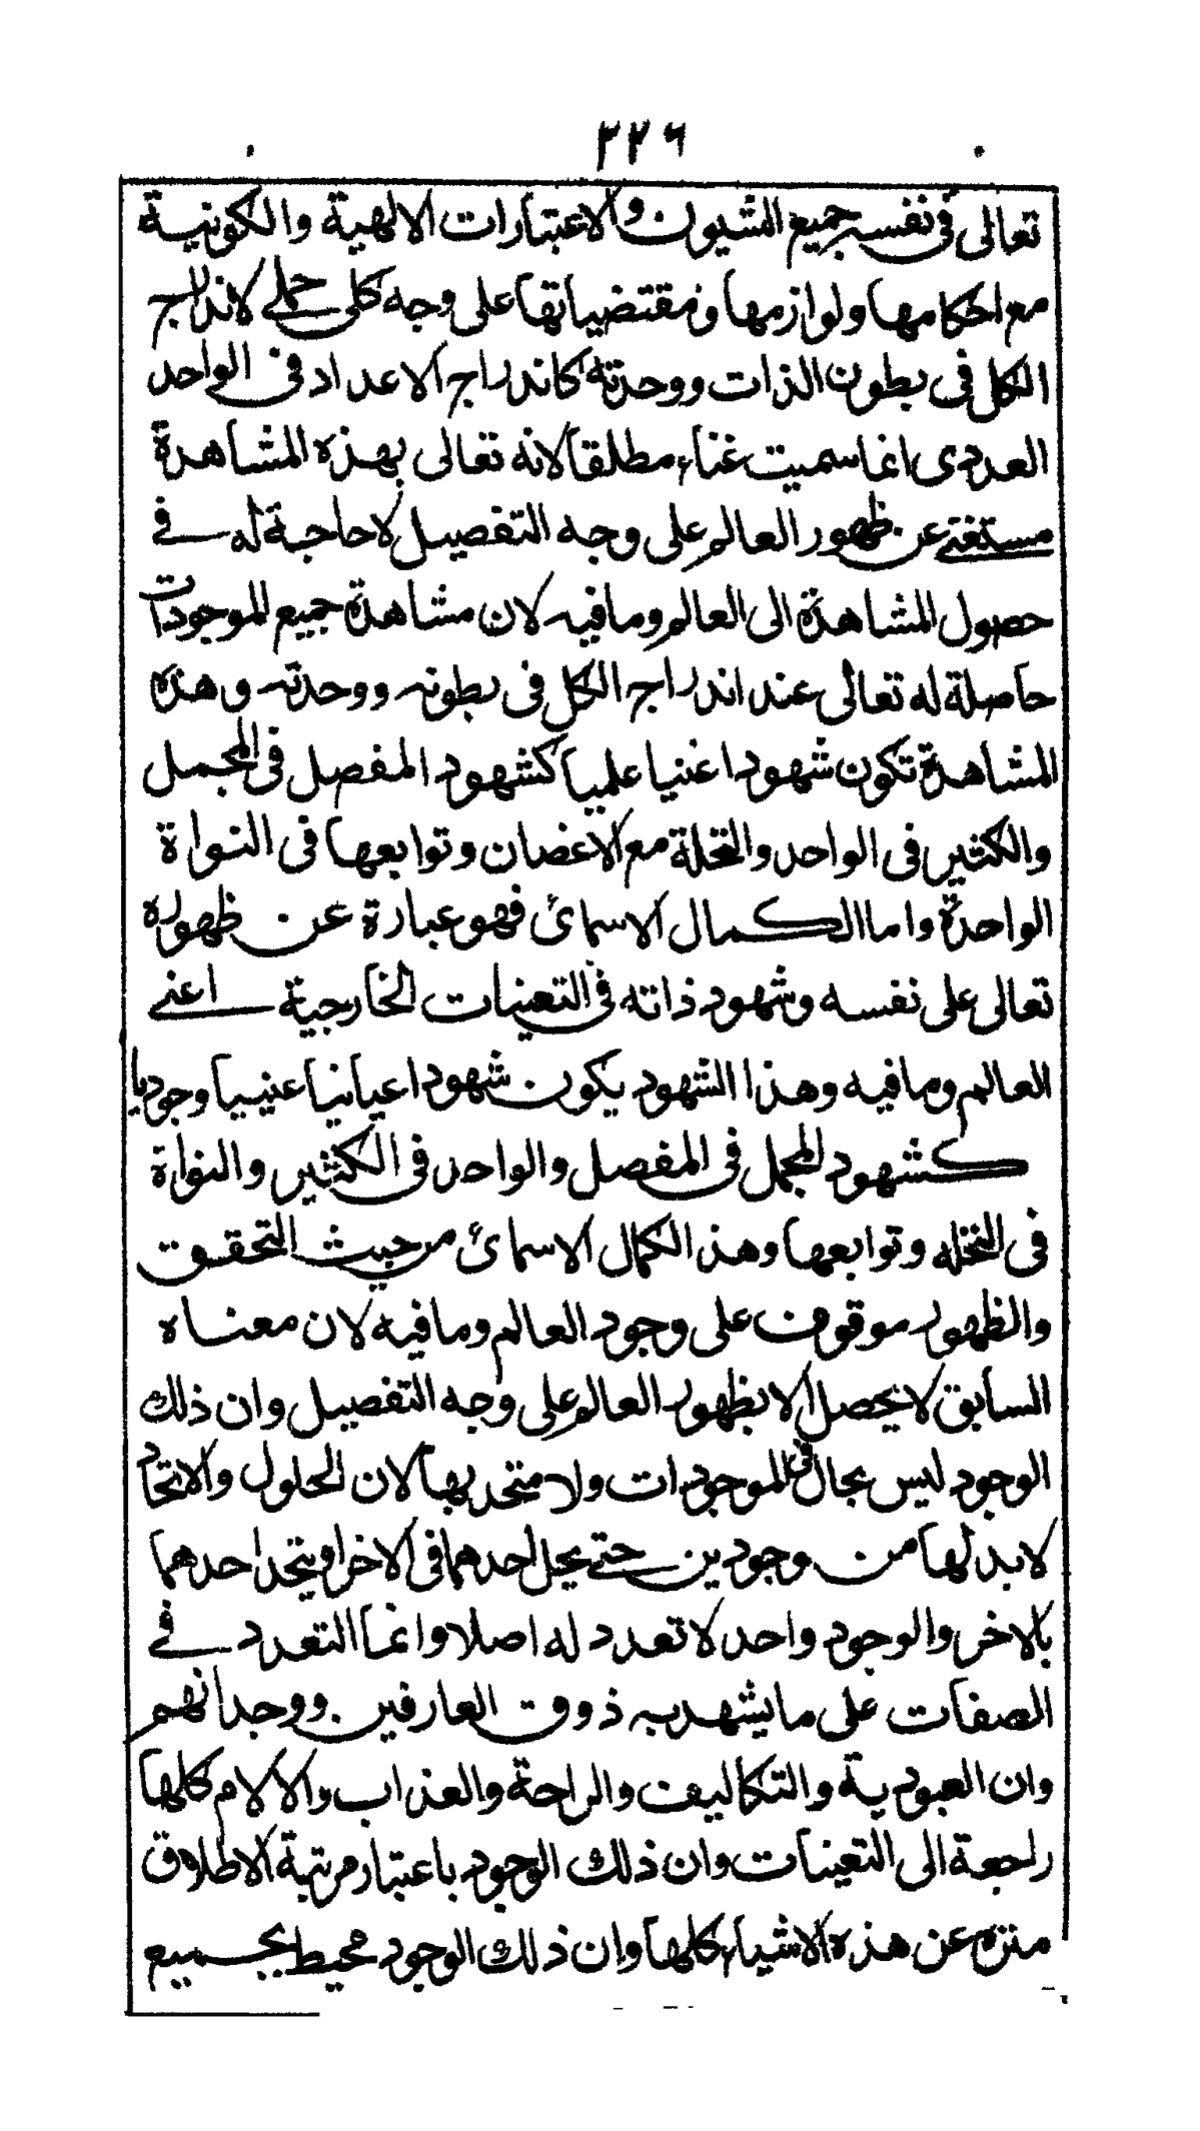 ٣٢٦
تعالى فى نفسه جميع الشيون والاعتبارات الالهية والكونية
مع احكامها ولوازمها ومقتضياتها على وجه كلى جملى لاندراج
الكل فى بطون الذات ووحدته كاندراج الاعداد فى الواحد
العددى انما سميت غناء مطلقا لانه تعالى بهذه المشاهدة
مستغنى عن ظهور العالم على وجه التفصيل لا حاجة له فى
حصول المشاهدة الى العالم وما فيه لان مشاهدة جميع الموجودات
حاصلة له تعالى عند اندراج الكل فى بطونه ووحدته وهذه
المشاهدة تكون شهودا غنيا علميا كشهود المفصل فى المجمل
والكثير فى الواحد والنخلة مع الاغضان وتوابعها فى النواة
الواحدة واما الكمال الاسمائ فهو عبارة عن ظهوره
تعالى على نفسه وشهود ذاته فى التعينات الخارجية اعنى
العالم وما فيه وهذا الشهود يكون شهودا عيانيا عينيا وجوديا
كشهود المجمل فى المفصل والواحد فى الكثير والنواة
فى النخله وتوابعها وهذ الكمال الاسمائ من حيث التحقق
والظهور موقوف على وجود العالم وما فيه لان معناه
السابق لا يحصل الا بظهور العالم على وجه التفصيل وان ذلك
الوجود ليس بحال فى الموجودات ولا متحد بها لان الحلول والاتحاد
لا بد لها من وجودين حتى يحل احدهما فى الاخر او يتحد احدهما
بالاخر والوجود واحد لا تعدد له اصلا وانما التعدد فى
الصفات على ما يشهد به ذوق العارفين ووجدانهم
وان العبودية والتكاليف والراحة والعذاب والالام كلها
راجعة الى التعينات وان ذلك الوجود باعتبار مرتبة الاطلاق
منزه عن هذه الاشياء كلها وان ذلك الوجود محيط بجميع